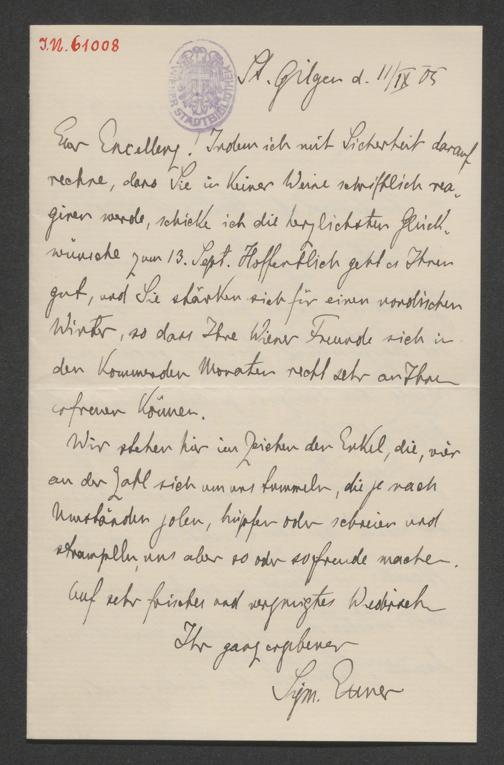 J.N. 61008
WIENER STADTBIBLIOTHEK
St. Gilgen d. 11/IX 05
Euer Excellenz! Indem ich mit Sicherheit darauf
rechne, dass Sie in keiner Weise schriftlich rea-
giren werde, schicke ich die herzlichsten Glück-
wünsche zum 13. Sept. Hoffentlich geht es Ihnen
gut, und Sie stärken sich für einen nordischen
Winter, so dass Ihre Wiener Freunde sich in
den kommenden Monaten recht sehr an Ihnen
erfreuen können.
Wir stehen hier im Zeichen der Enkel, die, vier
an der Zahl sich um uns tummeln, die je nach
Umständen jolen, hüpfen oder schreien und
strampeln, uns aber so oder so freude machen.
Auf sehr frisches und vergnügtes Wiedersehen
Ihr ganz ergebener
Sigm. Exner